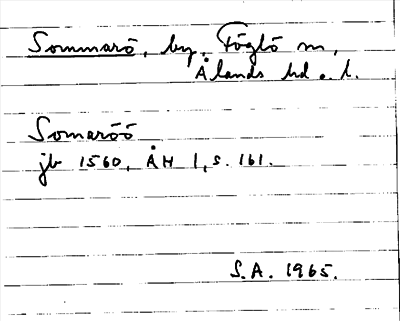 Sommarö, by. Föglö m,
Ålands hd. l.
Somaröö
jb 1560, ÅH 1, s. 161.
S.A. 1965.